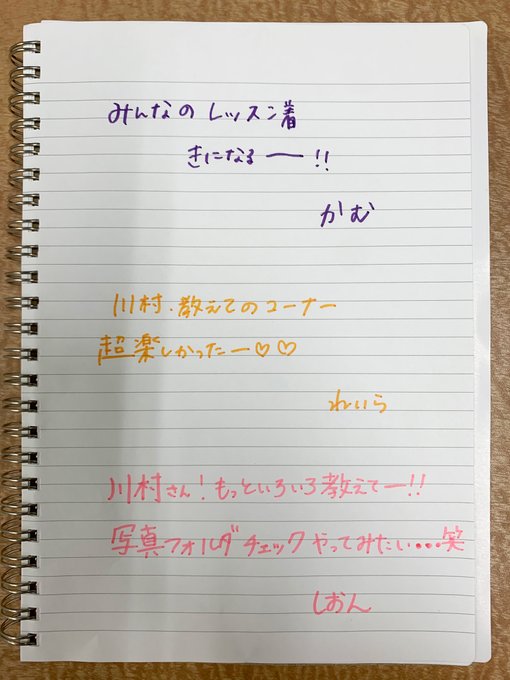 みんなのレッスン着
きになるー!!
かむ
川村、教えてのコーナー
超楽しかったー♡♡
れいら
川村さん!もっといろいろ教えてー!!
写真フォルダチェックやってみたい…笑
しおん